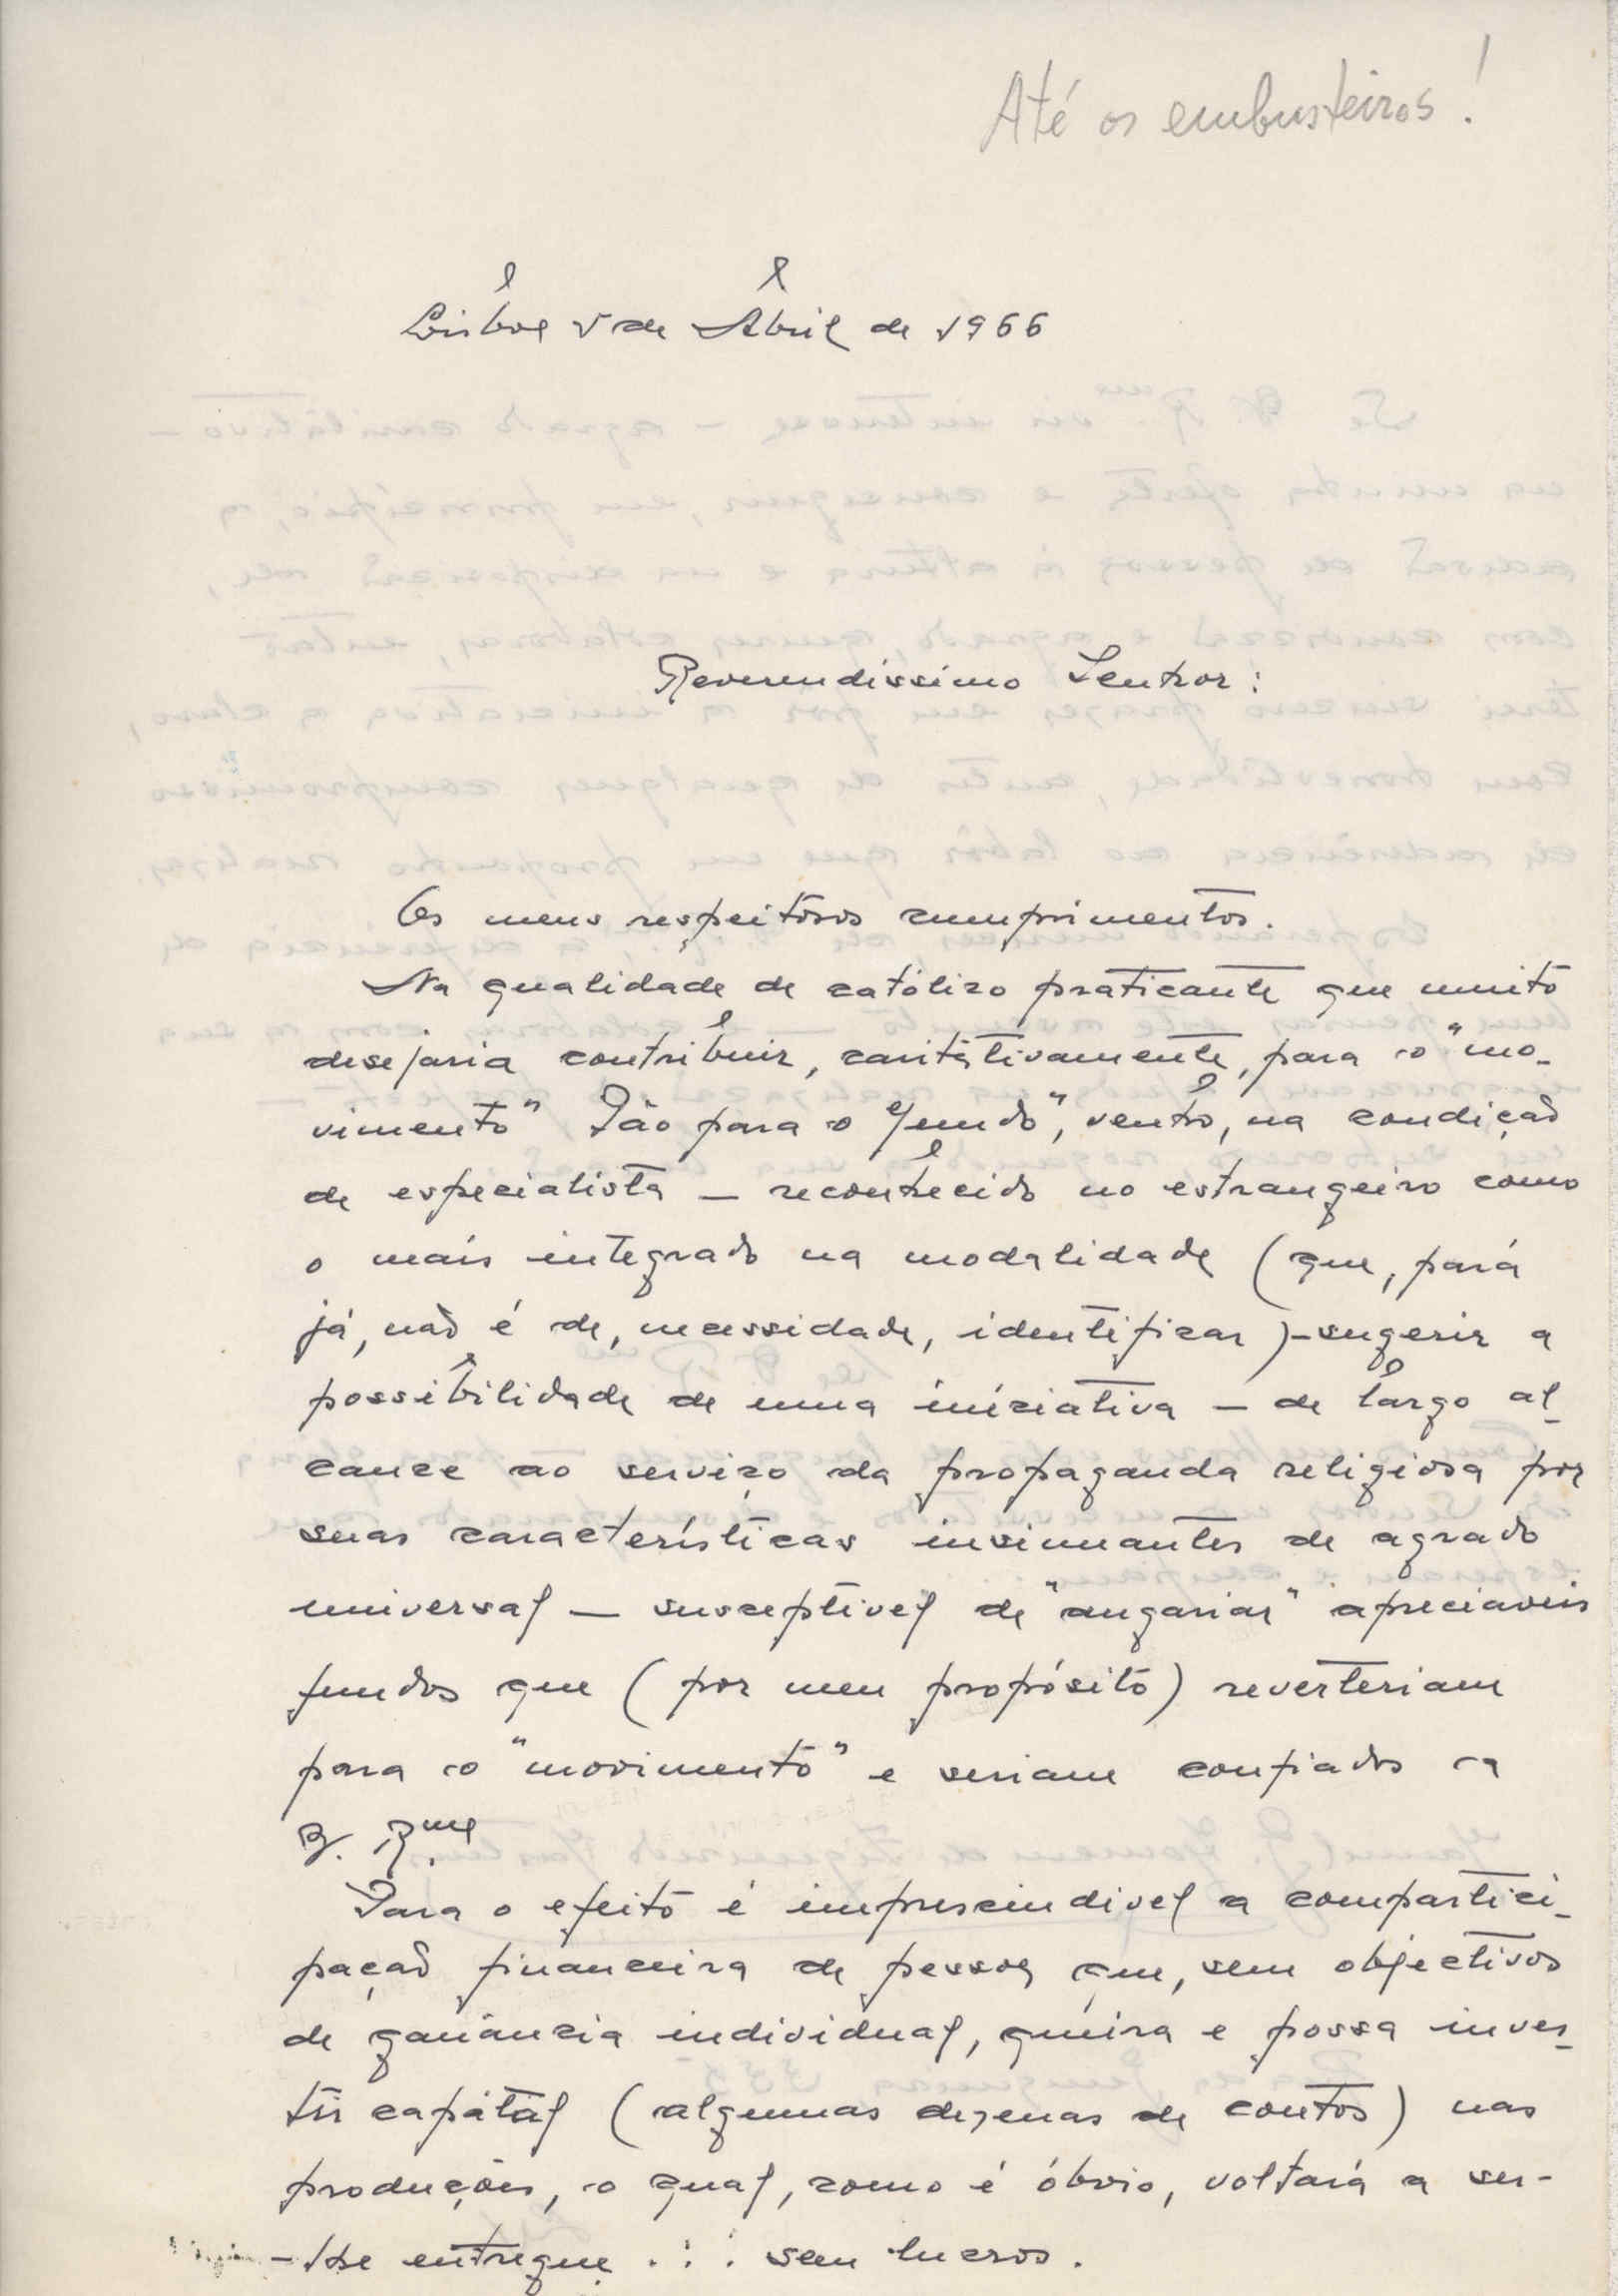 Até os embusteiros!
Lisboa 5 de Abril de 1966
Reverendíssimo Senhor:
Os meus respeitosos cumprimentos.
Na qualidade de católico praticante que muito
desejaria contribuir, caritativamente, para o "mo-
vimento" Pão para o mundo", venho, na condição
de especialista — reconhecido no estrangeiro como
o mais integrado na modalidade (que, para
já, não é de, necessidade, identificar) - sugerir a
possibilidade de uma iniciativa — de largo al-
cance ao serviço da propaganda religiosa por
suas características insinuantes de agrado
universal — susceptivel de "angariar" apreciaveis
fundos que (por meu propósito) reverteriam
para o "movimento" e seriam confiados a
V. Rma
Para o efeito é imprescindivel a compartici-
pação financeira de pessoa que, sem objectivos
de ganância individual, queira e possa inves-
tir capital (algumas dezenas de contos) nas
produções, o qual, como é óbvio, voltará a ser-
-lhe entregue . . . sem lucros.